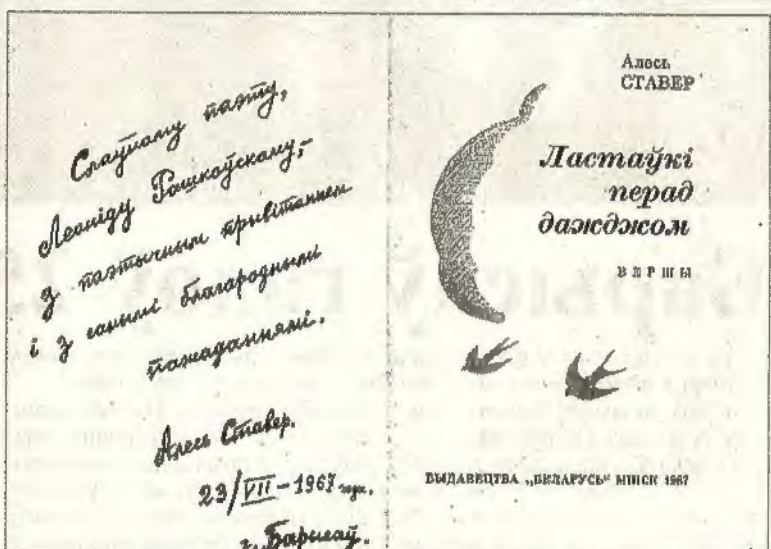 Слаўнаму паэту,
Леаніду Рашкоўскаму,-
з паэтычным прывітаннем
і з самымі благароднымі
пажаданнямі.
Алесь Ставер.
23/VII-1967
г. Барысаў.
Алесь
СТАВЕР
Ластаўкі
перад
дажджом
ВЕРШЫ
ВЫДАВЕЦТВА „БЕЛАРУСЬ“ МІНСК 1967